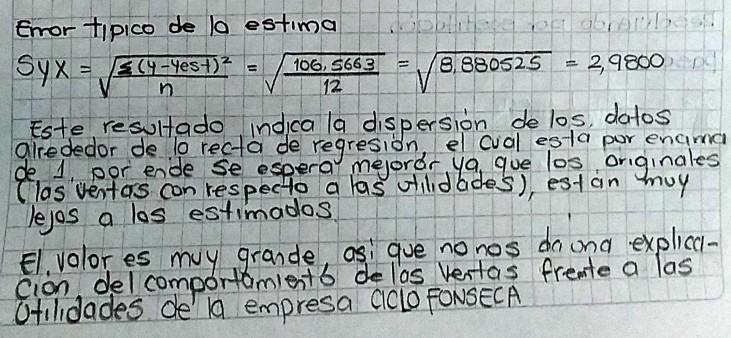 Error tipico de la estima
Syx = √Σ(y-yest)²/n = √106,5663/12 = √8,880525 = 2,9800
Este resultado indica la dispersión de los datos
alrededor de la recta de regresión, el cual esta por encima
de 1, por ende se espera mejorar ya que los originales
(las ventas con respecto a las utilidades), están muy
lejos a los estimados.
El valor es muy grande, así que no nos da una explica-
ción del comportamiento de las ventas frente a las
Utilidades de la empresa CICLO FONSECA